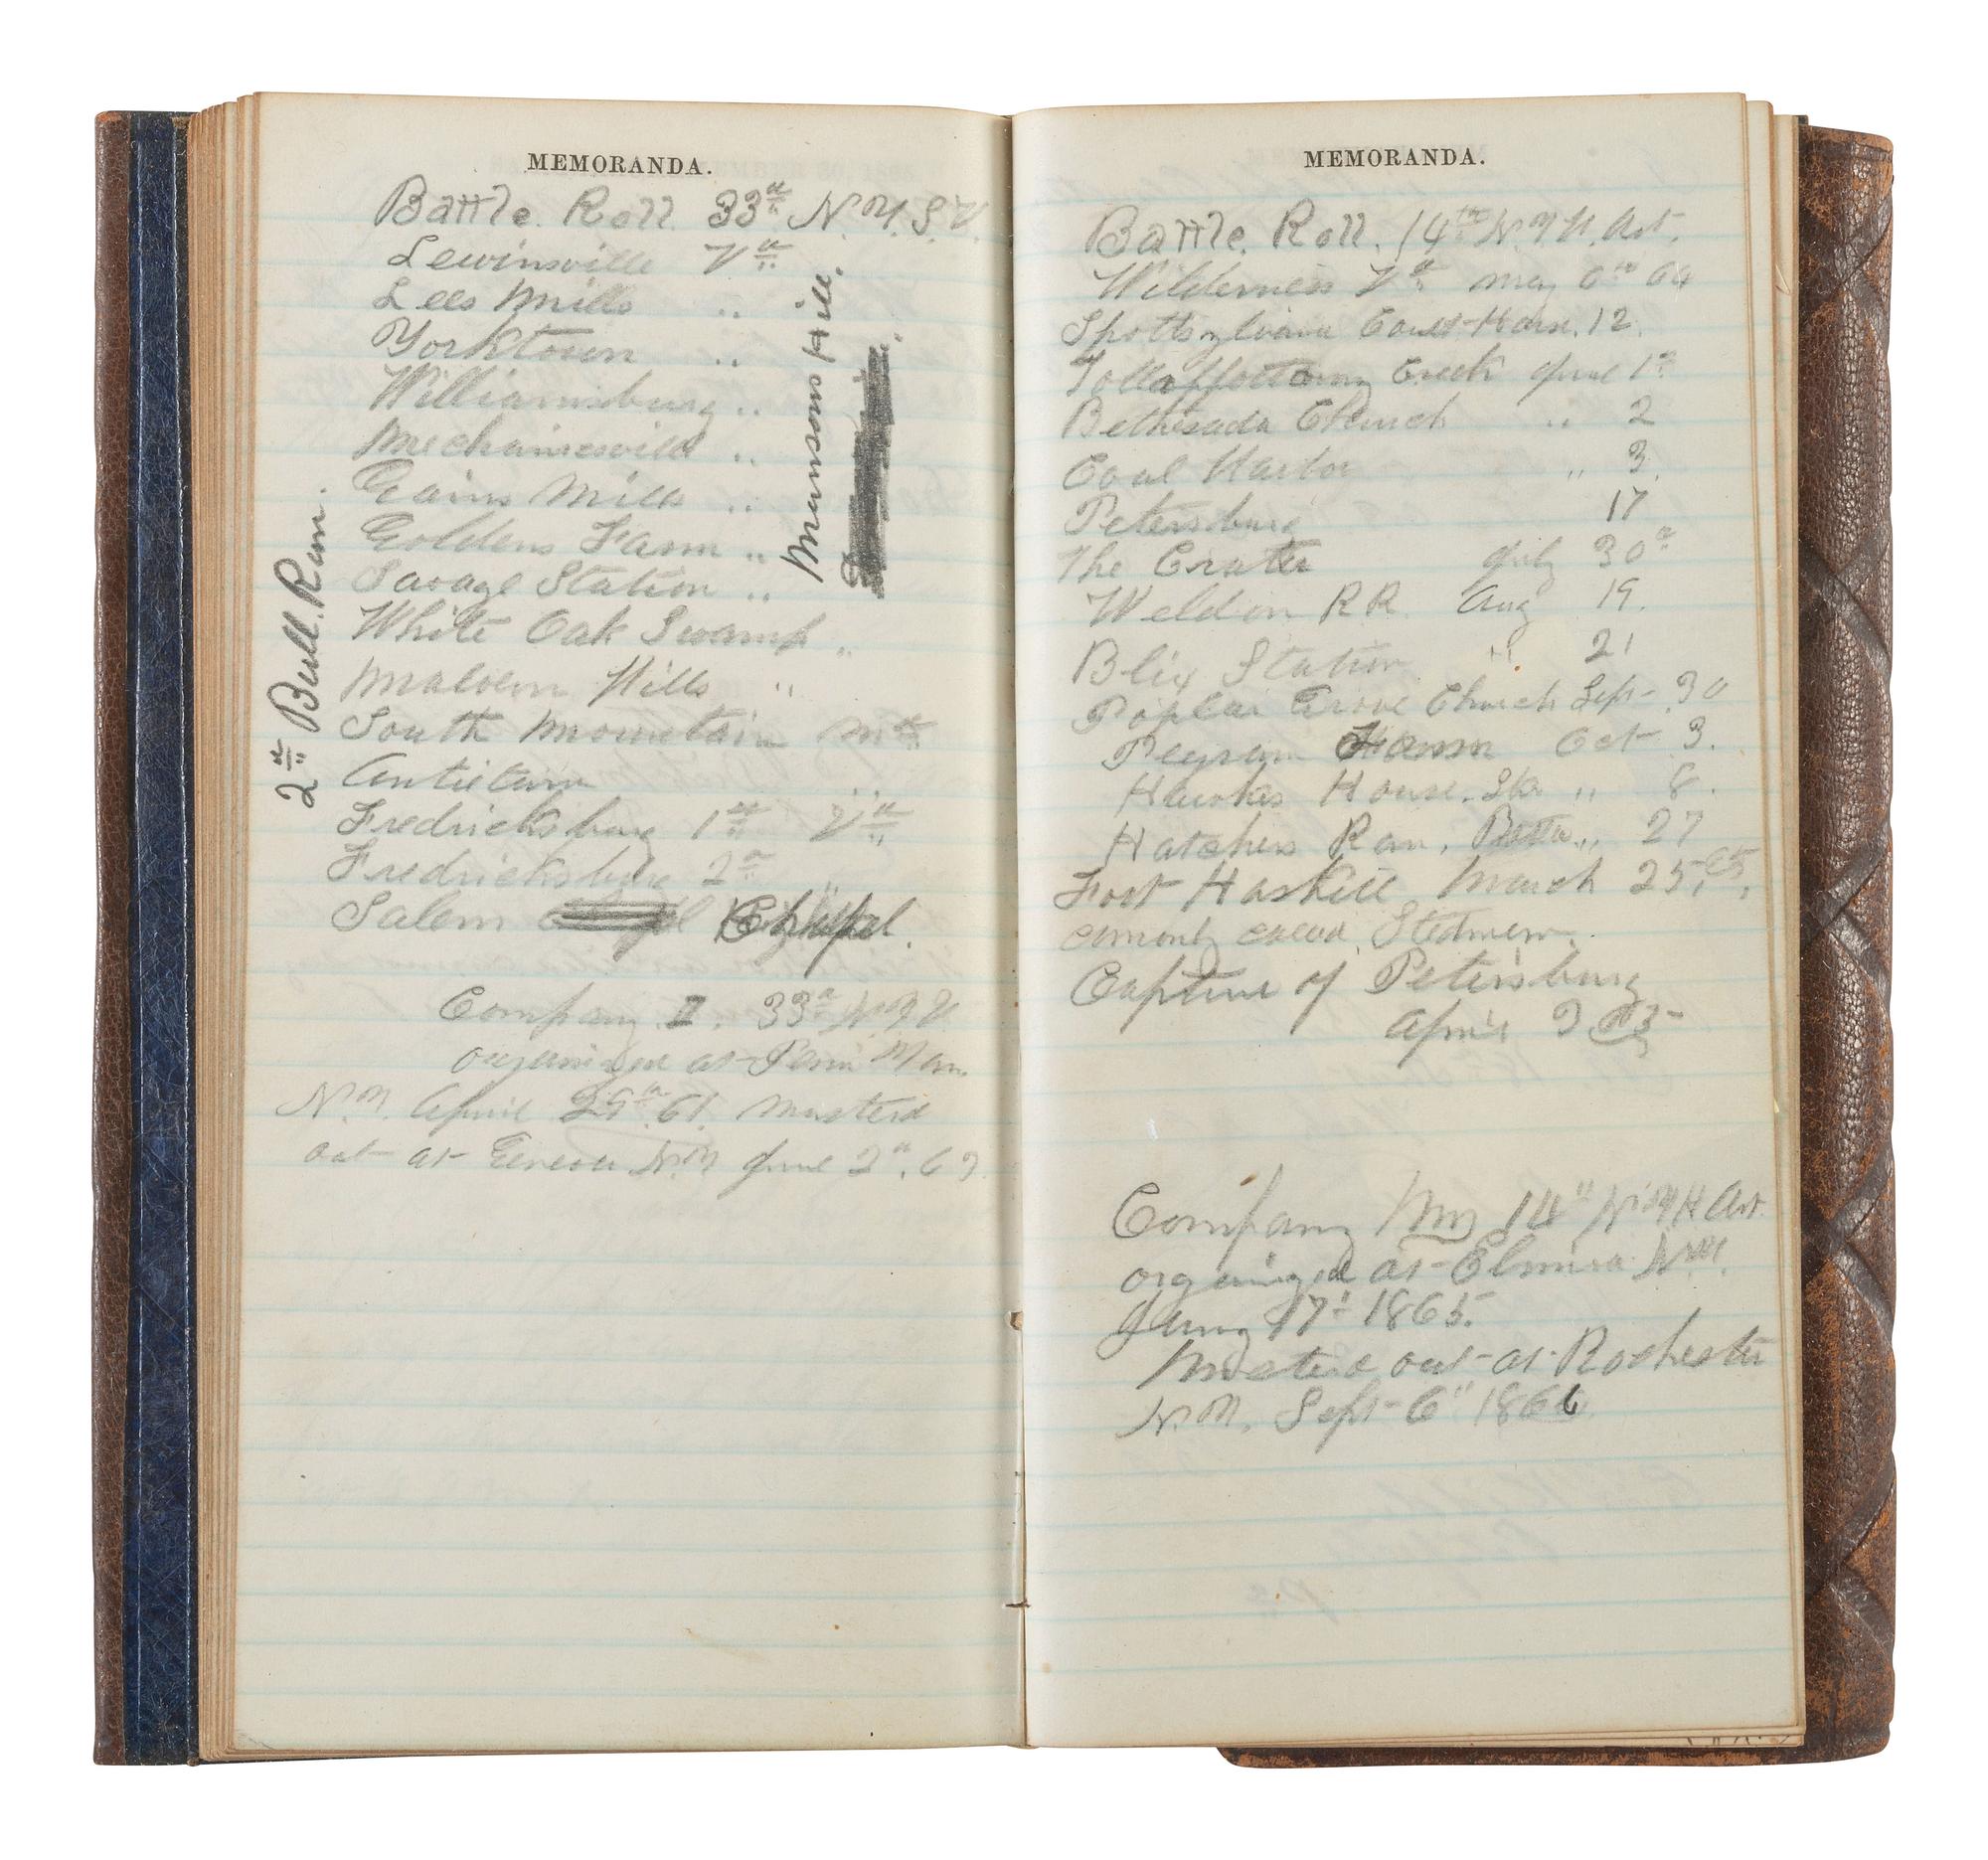 MEMORANDA.
Battle Roll 33d N.Y.S.V.
Lewinsville Va
Lees Mills "
Yorktown "
Williamsburg "
Mechanicsvill "
Gains Mills "
Goldens Farm "
Savage Station "
White Oak Swamp "
Malvern Hills "
South Mountain Md
Antietam "
Fredricksburg 1st Va
Fredricksburg 2d "
Salem Chapel.
Munsons Hill.
2d Bull Run.
Company 33d N.Y.V.
organized at Penn Yan
N.Y. April 61. Musterd
out at Geneva N.Y. June 2d. 63
MEMORANDA.
Battle Roll. 14th N.Y.H. Art.
Wilderness Va May 6th 64
Spottsylvania Court House. 12.
Creek June 1st
Bethesada Church " 2
Coal Harbor " 3.
Petersburg 17
The Crater July 30th
Weldon RR. Aug 19.
Blix Station " 21
Poplar Grove Church Sept 30
Pegram Oct 3.
House. " 8.
Hatchers Run, " 27
Fort Haskill March 25, 65,
Stedmen.
Capture of Petersburg
April
Company 14" N.Y.H Art.
organized at Elmira N.Y.
17" 1865.
Musterd out at Rochester
N.Y. Sept 6" 186